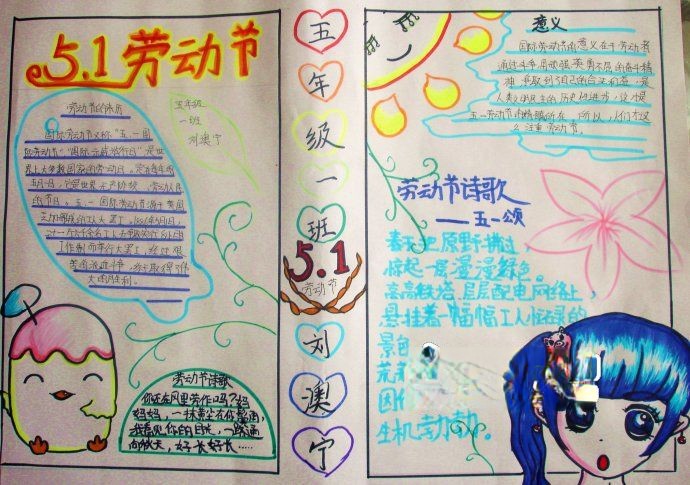 5.1劳动节
劳动节的来历
五年级
一班
刘澳宁
国际劳动节又称"五一国
际劳动节""国际示威游行日"是世
界上大多数国家的劳动节，定在每年的
五月一日，它是世界无产阶级、劳动人民
的节日。五、一国际劳动节源于美国
芝加哥城的工人大罢工，1886年5月1日，
工作制而举行大罢工，经过艰
大的胜利。
劳动节诗歌
你还在风里劳作吗？妈
妈妈，一抹黄尘在你
我看见你的目光，一路通
向秋天，好长好长……
五
年
级
一
班
5.1
劳动节
刘
澳
宁
意义
国际劳动节的意义在于劳动者
通过斗争，用顽强、英勇不屈的奋斗精
神，争取到了自己的合法权益，是
人类文明民主的历史性进步，这才是
五一劳动节的精髓所在。所以，人们才这
么注重劳动节。
劳动节诗歌
——五一颂
春天把原野拂过，
惊起一层漫漫绿色
高高铁塔，层层配电网络上，
悬挂着一幅幅工人忙碌的
景色
荒
因
生机勃勃。